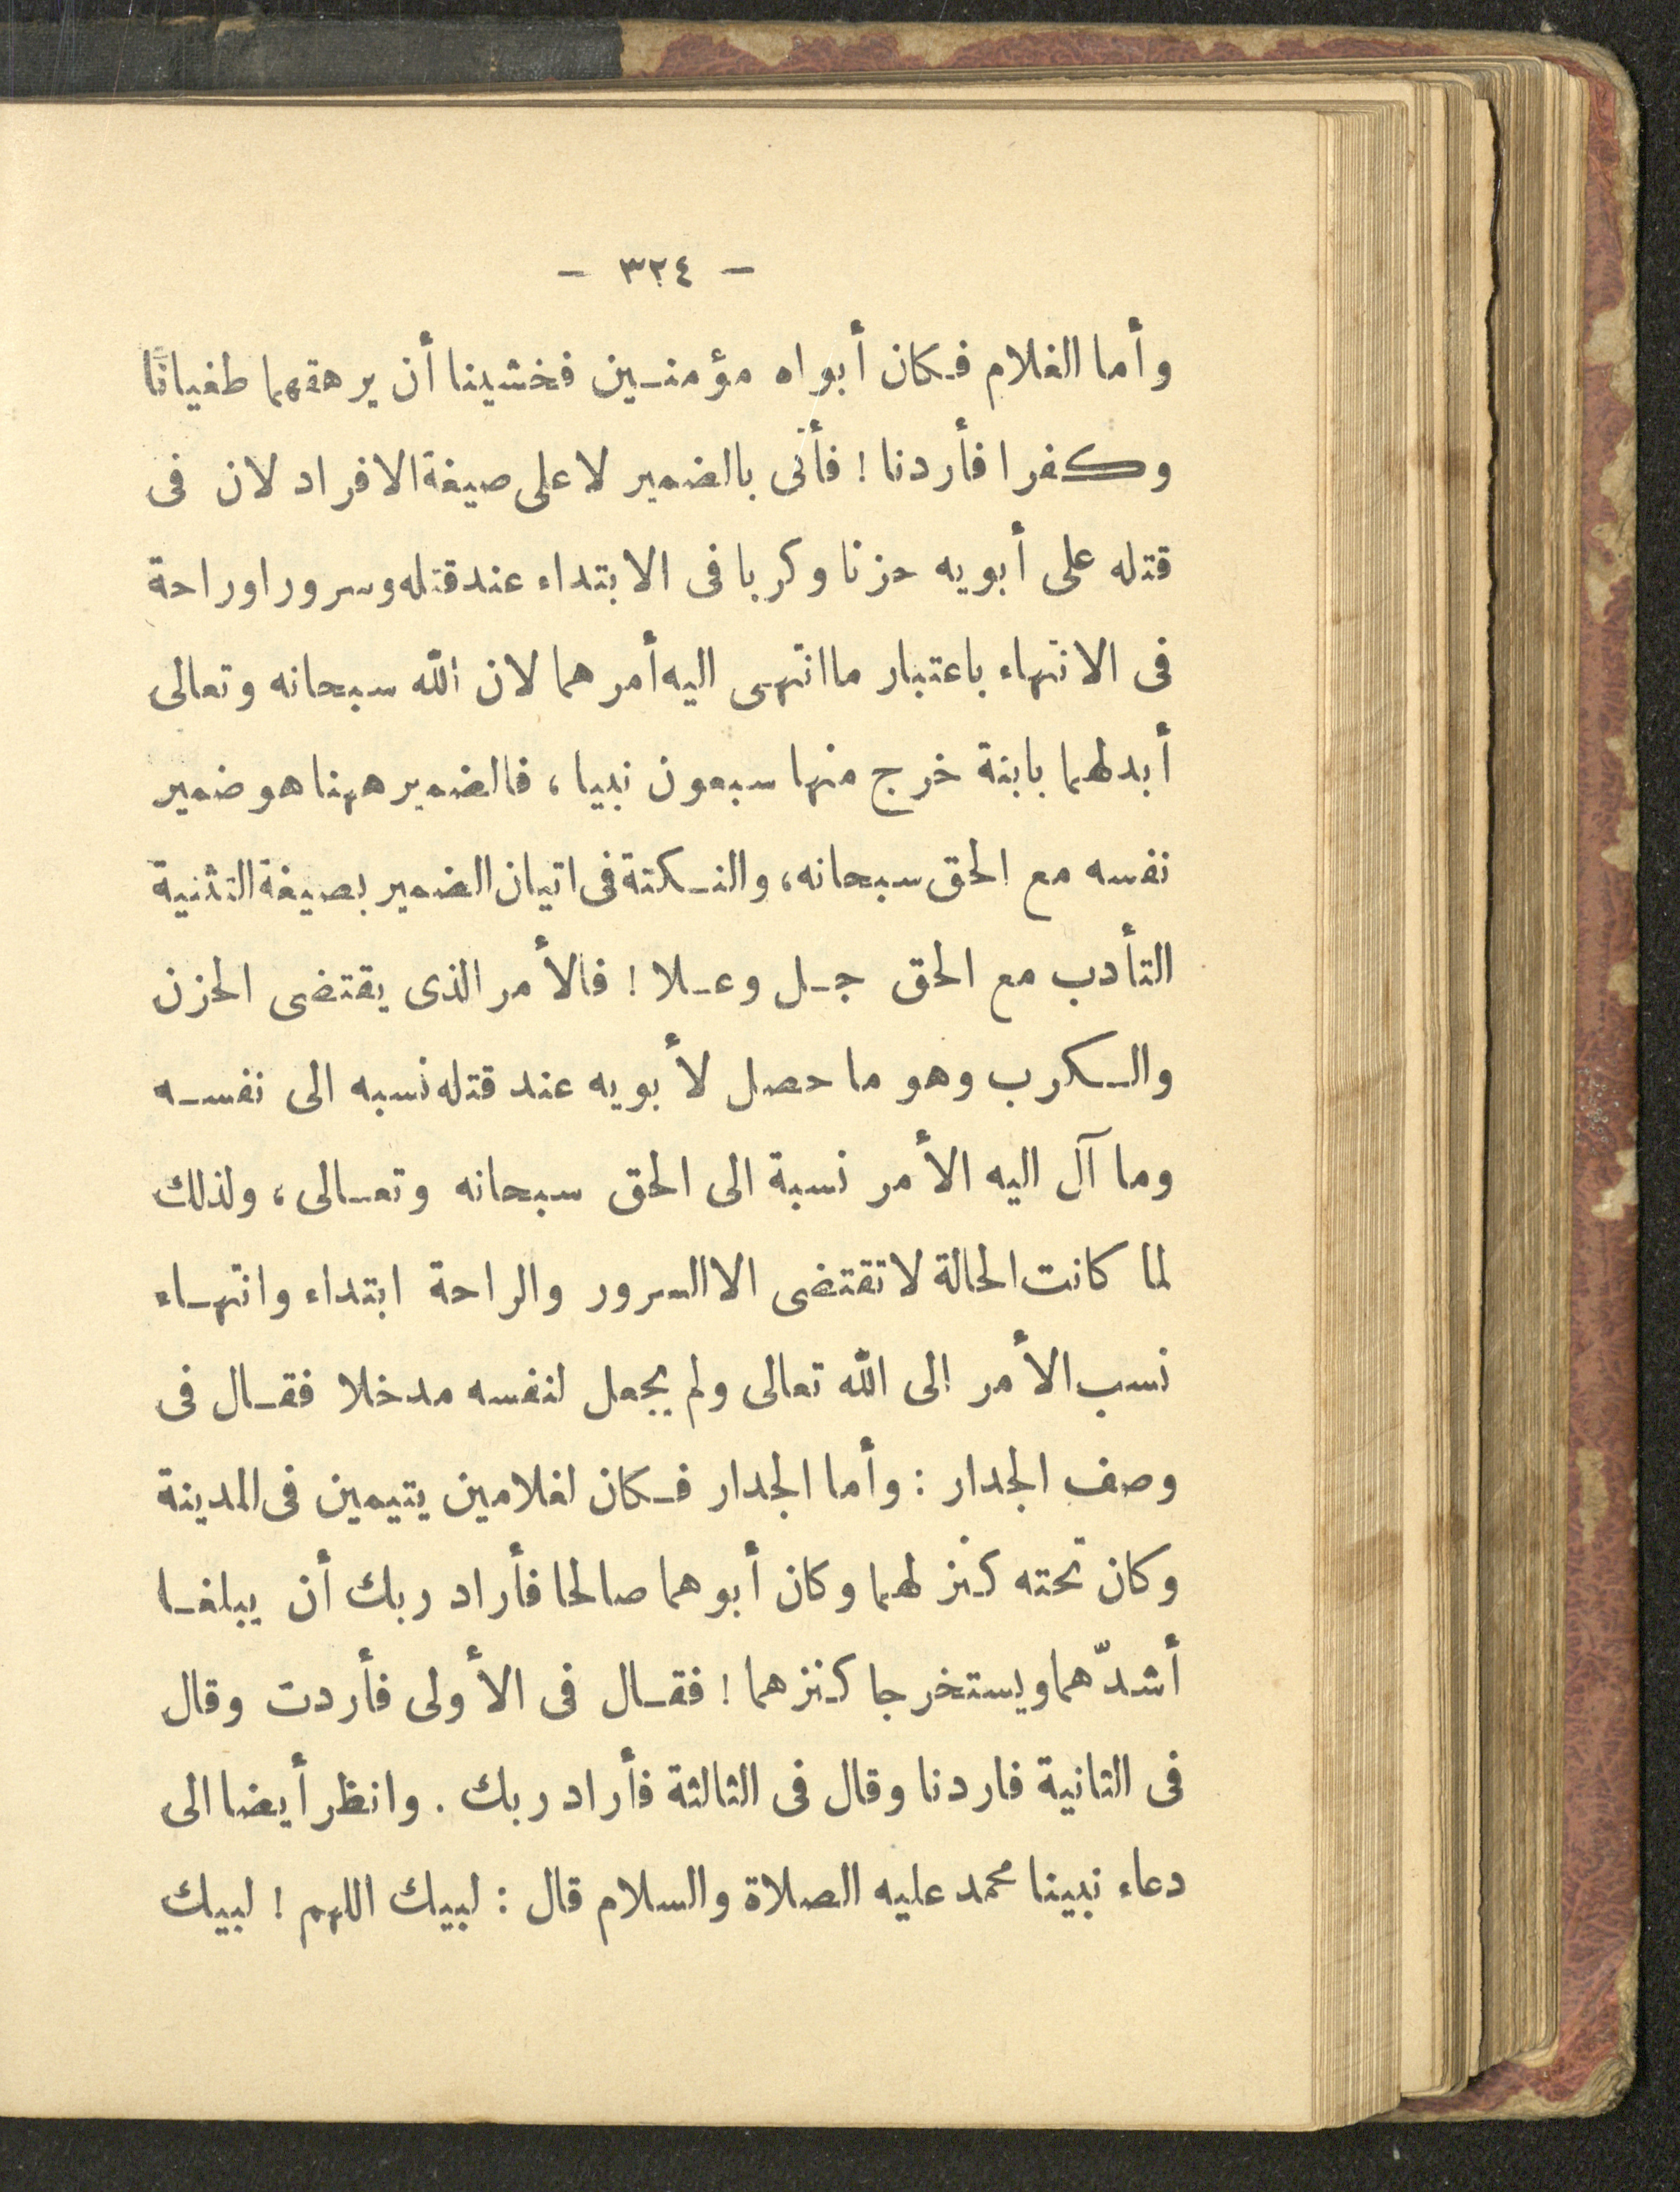 - ٣٢٤ -
وأما الغلام فكان أبواه مؤمنين فخشينا أن يرهقهما طغيانًا
وكفرا فأردنا ! فأتى بالضمير لا على صيغة الافراد لان فى
قتله على أبويه حزنا وكربا فى الابتداء عند قتله وسرورا وراحة
فى الانتهاء باعتبار ما انتهى اليه أمرهما لان الله سبحانه وتعالى
أبدلهما بابنة خرج منها سبعون نبيا ، فالضمير ههنا هو ضمير
نفسه مع الحق سبحانه ، والنكتة فى اتيان الضمير بصيغة التثنية
التأدب مع الحق جل وعلا ! فالأمر الذى يقتضى الحزن
والكرب وهو ما حصل لأبويه عند قتله نسبه الى نفسه
وما آل اليه الأمر نسبة الى الحق سبحانه وتعالى ، ولذلك
لما كانت الحالة لا تقتضى الا السرور والراحة ابتداء وانتهاء
نسب الأمر الى الله تعالى ولم يجعل لنفسه مدخلا فقال فى
وصف الجدار : وأما الجدار فكان لغلامين يتيمين فى المدينة
وكان تحته كنز لهما وكان أبوهما صالحا فأراد ربك أن يبلغا
أشدّهما ويستخرجا كنزهما ! فقال فى الأولى فأردت وقال
فى الثانية فاردنا وقال فى الثالثة فأراد ربك . وانظر أيضا الى
دعاء نبينا محمد عليه الصلاة والسلام قال : لبيك اللهم ! لبيك